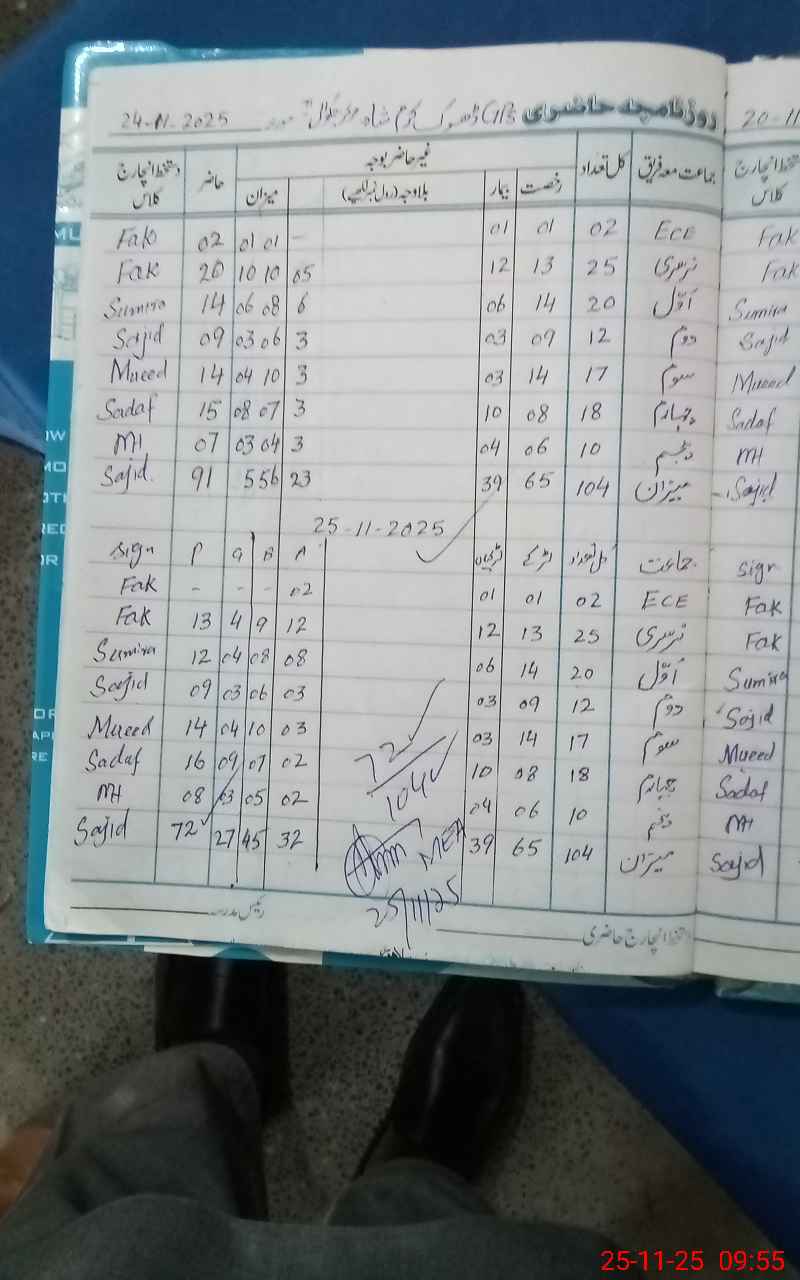 روزنامچہ حاضری GPS ڈھوک کرم شاہ 24-11-2025
جماعت معہ فریق کل تعداد غیر حاضر بوجہ حاضر دستخط انچارج کلاس
رخصت بیمار بلاوجہ (رول نمبر لکھیے) میزان
ECE 02 01 01 - 01 01 02 Fak
نرسری 25 13 12 05 10 10 20 Fak
اوّل 20 14 06 6 08 06 14 Sumira
دوم 12 09 03 3 06 03 09 Sajid
سوم 17 14 03 3 10 04 14 Mueed
چہارم 18 08 10 3 07 08 15 Sadaf
پنجم 10 06 04 3 04 03 07 MH
میزان 104 65 39 23 556 91 Sajid
25-11-2025
جماعت کل تعداد لڑکے لڑکیاں A B G P Sign
ECE 02 01 01 02 - - - Fak
نرسری 25 13 12 12 9 4 13 Fak
اوّل 20 14 06 08 08 04 12 Sumira
دوم 12 09 03 03 06 03 09 Sajid
سوم 17 14 03 03 10 04 14 Mueed
چہارم 18 08 10 02 07 09 16 Sadaf
پنجم 10 06 04 02 05 03 08 MH
میزان 104 65 39 32 45 27 72 Sajid
72
104
MEA
25/11/25
دستخط انچارج حاضری
رئیس مدرسہ
20-11
دستخط انچارج
کلاس
Fak
Fak
Sumira
Sajid
Mueed
Sadaf
MH
Sajid
Sign
Fak
Fak
Sumira
Sajid
Mueed
Sadaf
MH
Sajid
25-11-25 09:55